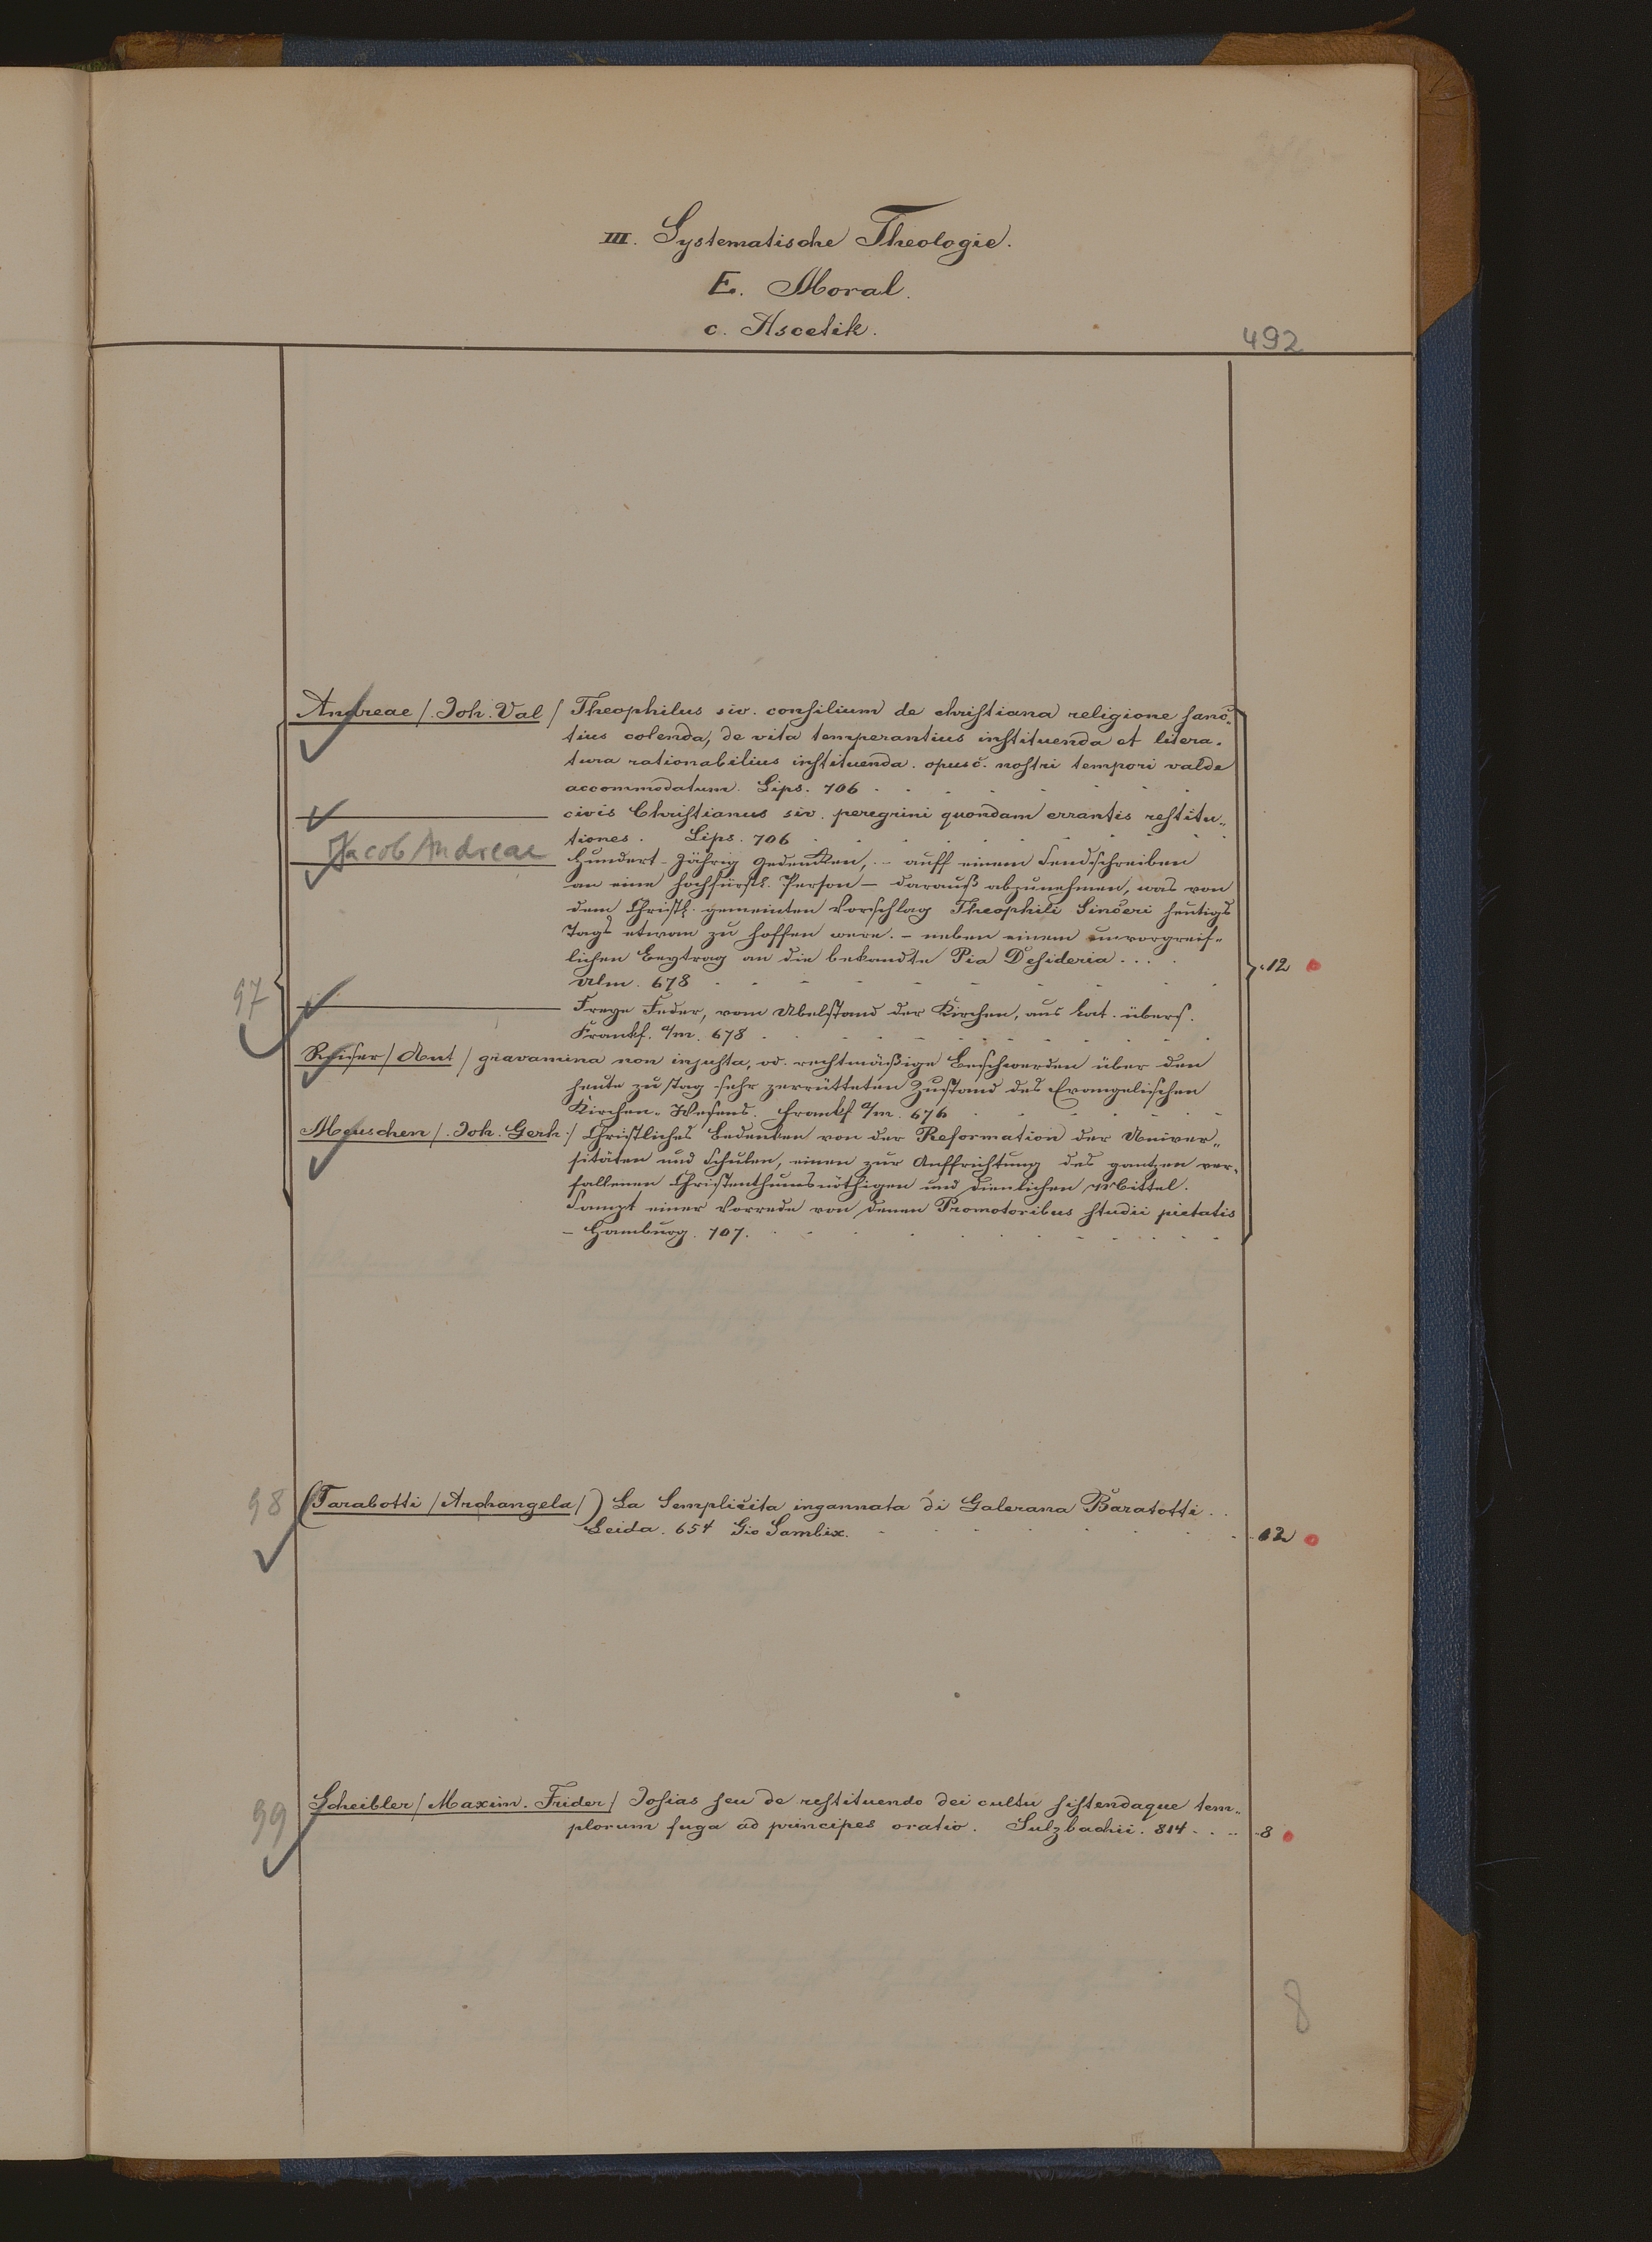 III. Systematische Theologie.
E. Moral.
c. Ascetik.
492
Andreae /. Joh. Val / Theophilus siv. consilium de christiana religione sanc„
tius colenda, de vita temperantius instituenda et litera.
tura rationabilius instituenda. opusc. nostri tempori valde
accommodatum. Lips. 706
civis Christianus siv. peregrini quondam errantis restitu„
tiones. Lips. 706
Jacob Andreae
Hundert-Jährig Gedencken, - auff einem Sendschreiben
an eine hochfürstl. Person - darauß abzunehmen, was von
dem Christl. gemeinten Vorschlag Theophili Sinceri heutigs
Tags etwan zu hoffen were. - neben einem unvorgreif„
lichen Beytrag an die bekandte Pia Desideria . . .
Ulm. 678
12
97
Freye Feder, vom Ubelstand der Kirchen, aus Lat. übers.
Frankf. a/m. 678
Reiser / Ant / gravamina non injusta, od. rechtmäßige Beschwerden über den
heute zu stag sehr zerrütteten Zustand des Evangelischen
Kirchen-Wesens. Frankf a/m. 676
Meuschen /. Joh. Gerh./ Christliches Bedenken von der Reformation der Univer„
sitäten und Schulen, einen zur Auffrichtung des gantzen ver„
fallenen Christenthums nöthigen und dienlichen Mittel.
Sampt einer Vorrede von denen Promotoribus studii pietatis
- Hamburg. 707.
98 (Tarabotti / Archangela /) La Semplicita ingannata di Galerana Baratotti . .
Leida. 654 Gio Sambix. 12
99 Scheibler / Maxim. Frider / Josias seu de restituendo dei cultu sistendaque tem„
plorum fuga ad principes oratio. Sulzbachii. 814 . . 8
8